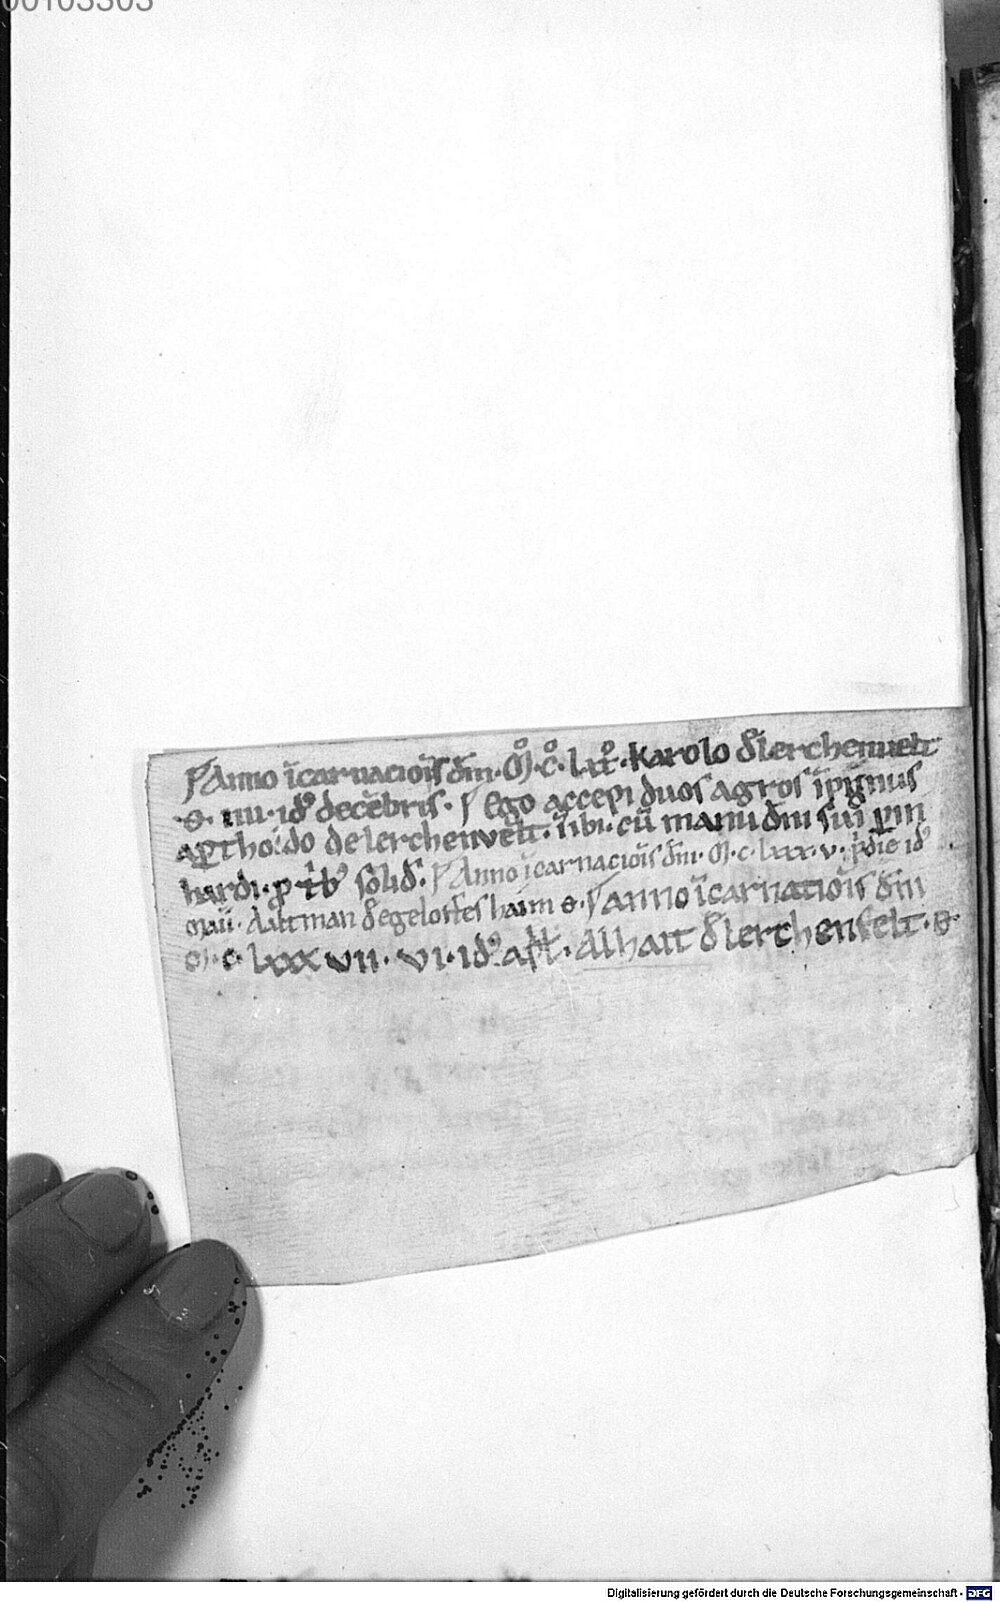 00103303
Anno ĩcarnacioĩs dm̃. M̊. c̊. lxx̊. Karolo de lerchenuelt
e. iiii. id' decẽbris. Ego accepi duos agros ĩpignus
a ꝑtholdo de lerchenvelt. ĩ ibi. cũ manu dñi sui pin
hardi. ꝓ trib' solid'. Anno ĩcarnaciõis dm̃. M. c. lxxx. v. pͥdie id'
maii. Aartman de egeloffeshaim e. Anno ĩcarnatiõis dm̃
M. c. lxxxvii. vi. id' apͥl. Alhart de lerchenfelt. e
Digitalisierung gefördert durch die Deutsche Forschungsgemeinschaft - DFG